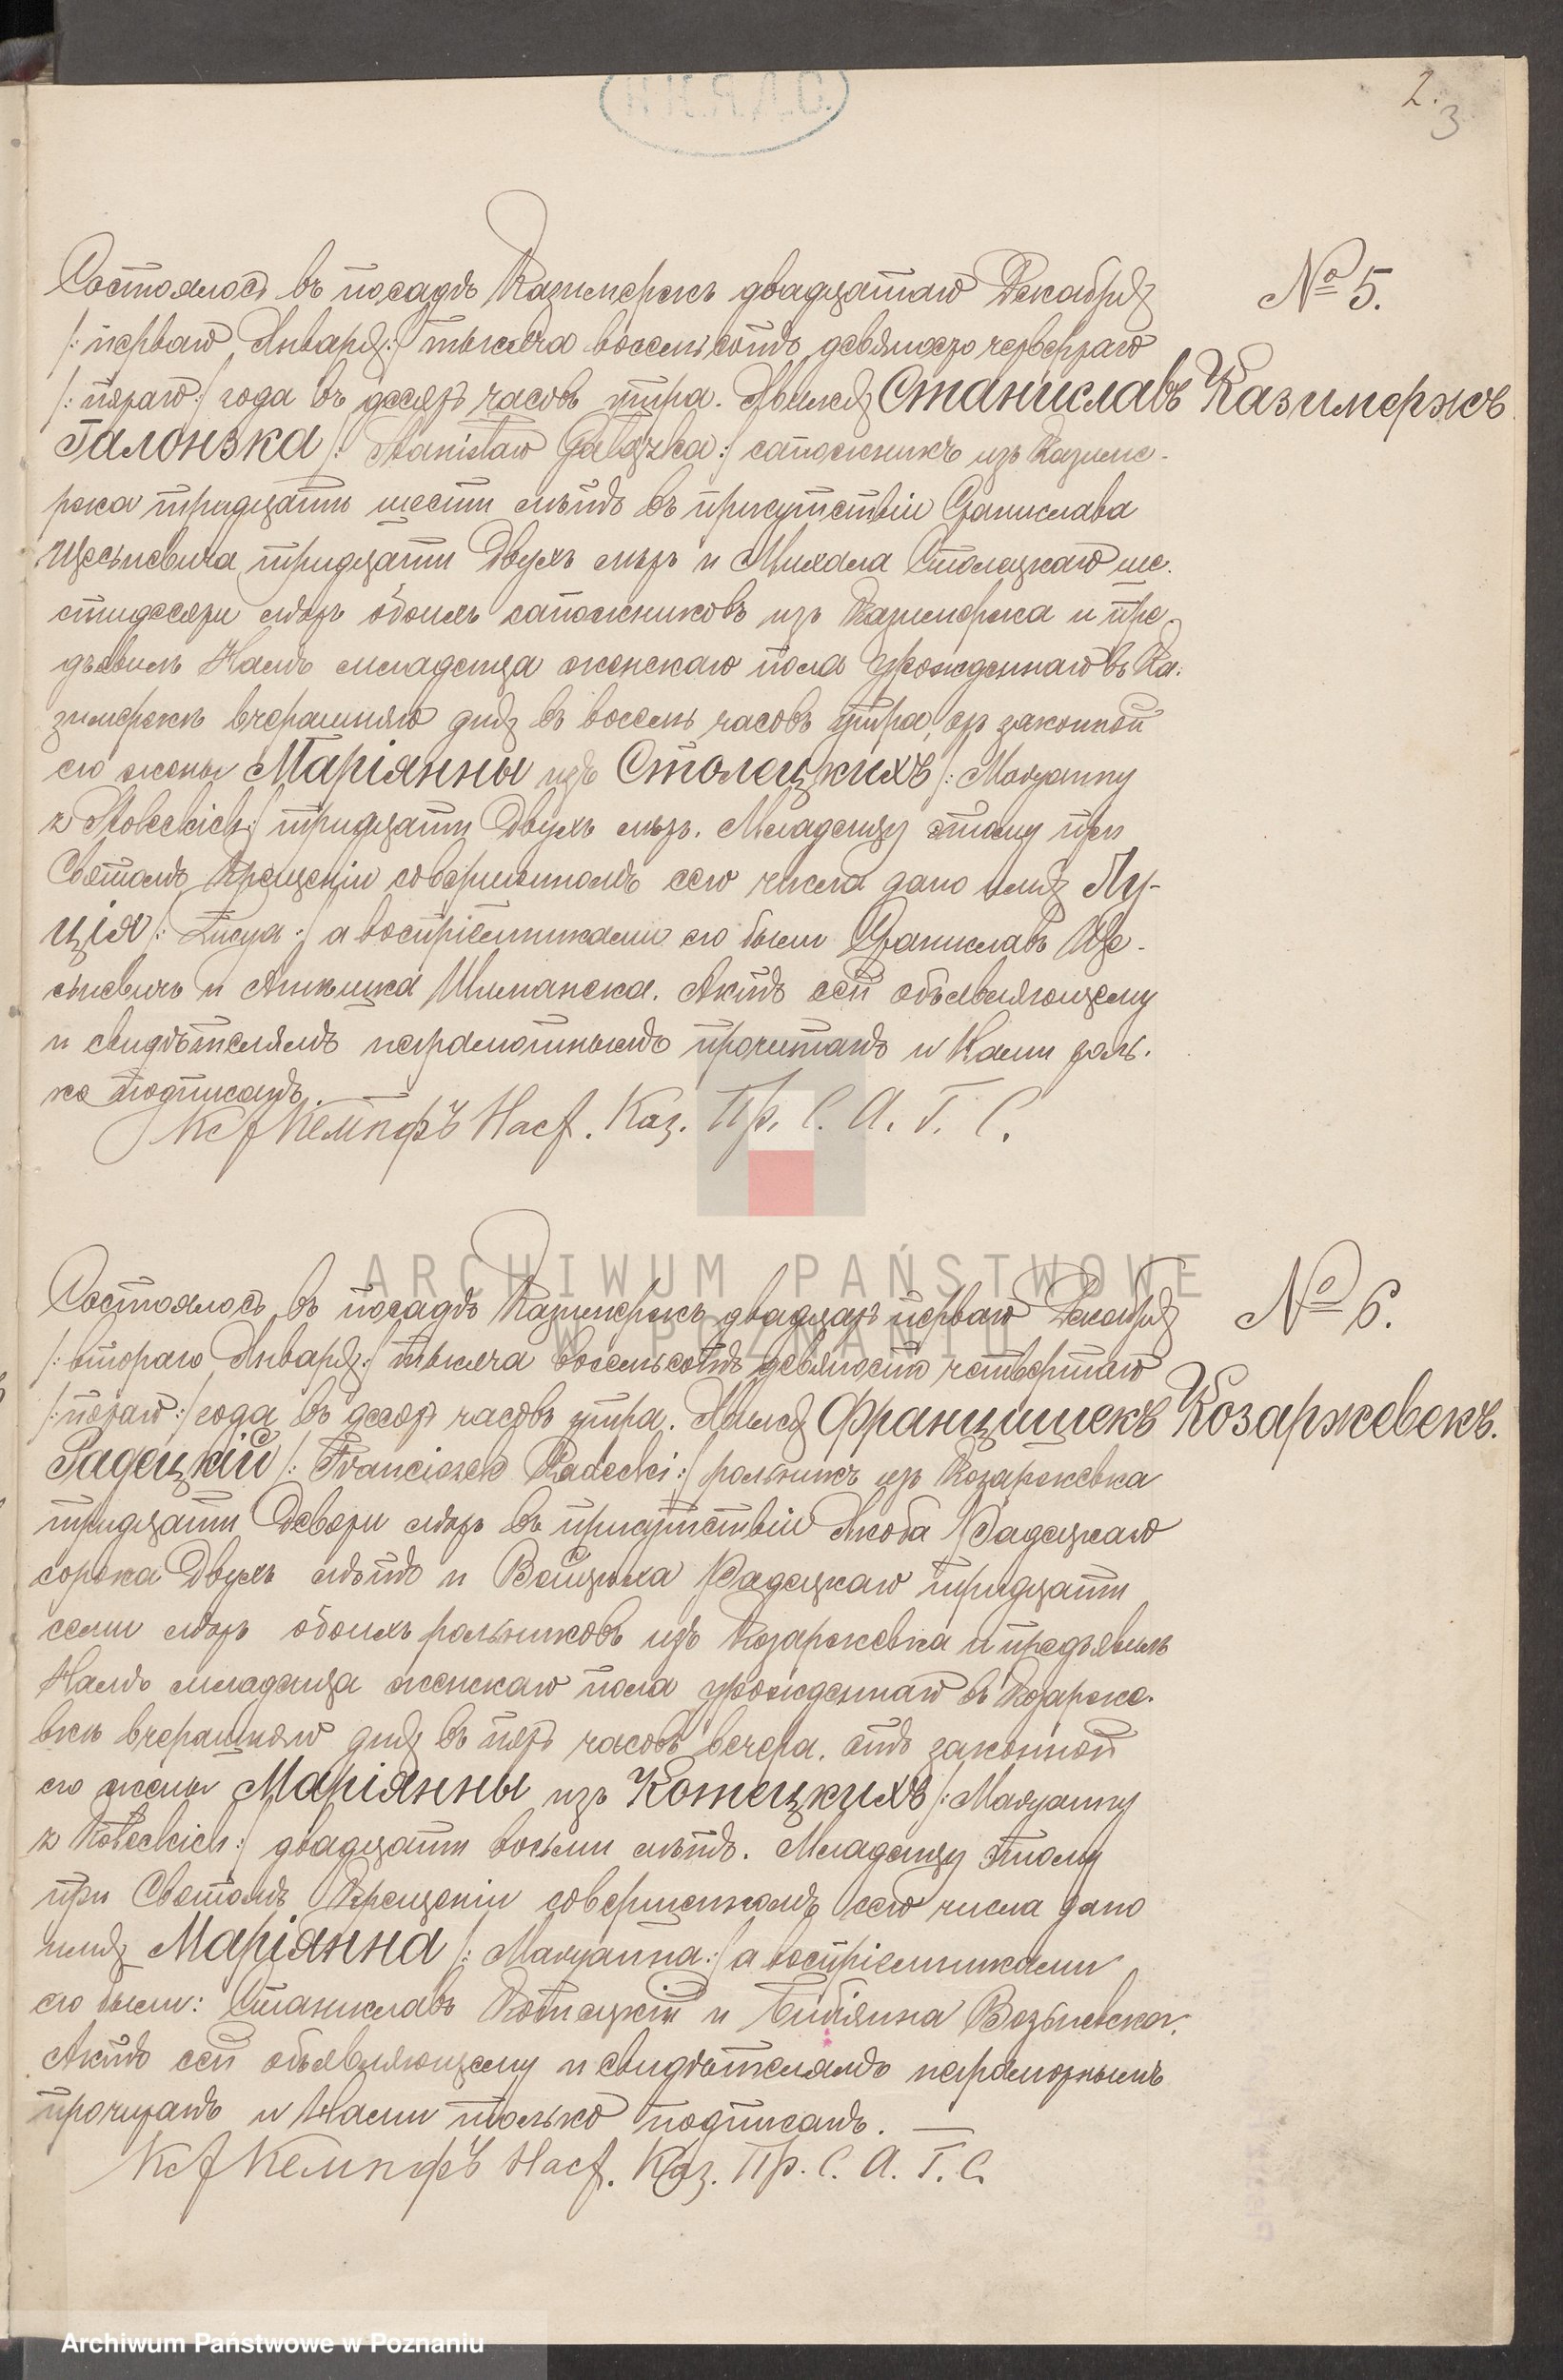 2.
3
№ 5.
Состоялось въ посадѣ Казимержѣ двадцатаго Декабря
/: перваго Января :/ тысяча восемьсотъ девяносто четвертаго
/: пятаго :/ года въ десять часовъ утра. Явился Станиславъ
Казимержъ
Галонзка /: Stanisław Gałązka :/ сапожникъ изъ Казиме-
ржа тридцати шести лѣтъ въ присутствіи Станислава
тридцати двухъ лѣтъ и Михала Столецкаго ше-
стидесяти лѣтъ обоихъ сапожниковъ изъ Казимержа и пре-
дъявилъ Намъ младенца женскаго пола урожденнаго въ Ка-
зимержѣ вчерашняго дня въ восемь часовъ утра, отъ законной
его жены Маріянны изъ Столецкихъ /: Maryanny
z Stoleckich :/ тридцати двухъ лѣтъ. Младенцу этому при
Святомъ Крещеніи совершенномъ сего числа дано имя Лу-
ція /: Łucya :/ а воспріемниками его были Станиславъ
и Агнѣшка Шиманска. Актъ сей объявляющему
и свидѣтелямъ неграмотнымъ прочитанъ и Нами толь-
ко подписанъ. —
Кс Кемпфъ Наст. Каз. Пр. С. А. Г. С.
№ 6.
Состоялось въ посадѣ Казимержѣ двадцать перваго Декабря
/: втораго Января :/ тысяча восемьсотъ девяносто четвертаго
/: пятаго :/ года въ десять часовъ утра. Явился Францишекъ
Козаржевекъ.
Радецкій /: Franciszek Radecki :/ рольникъ изъ Козаржевка
тридцати девяти лѣтъ въ присутствіи Якоба Радецкаго
сорока двухъ лѣтъ и Войцѣха Радецкаго тридцати
семи лѣтъ обоихъ рольниковъ изъ Козаржевка и предъявилъ
Намъ младенца женскаго пола урожденнаго въ Козарже-
вкѣ вчерашняго дня въ пять часовъ вечера, отъ законной
его жены Маріянны изъ Котецкихъ /: Maryanny
z Koteckich :/ двадцати восьми лѣтъ. Младенцу этому
при Святомъ Крещеніи совершенномъ сего числа дано
имя Маріянна /: Maryanna :/ а воспріемниками
его были: Станиславъ Котецкій и Бибіянна
Актъ сей объявляющему и свидѣтелямъ неграмотнымъ
прочитанъ и Нами только подписанъ. —
Кс Кемпфъ Наст. Каз. Пр. С. А. Г. С.
ARCHIWUM PAŃSTWOWE
W POZNANIU
Archiwum Państwowe w Poznaniu